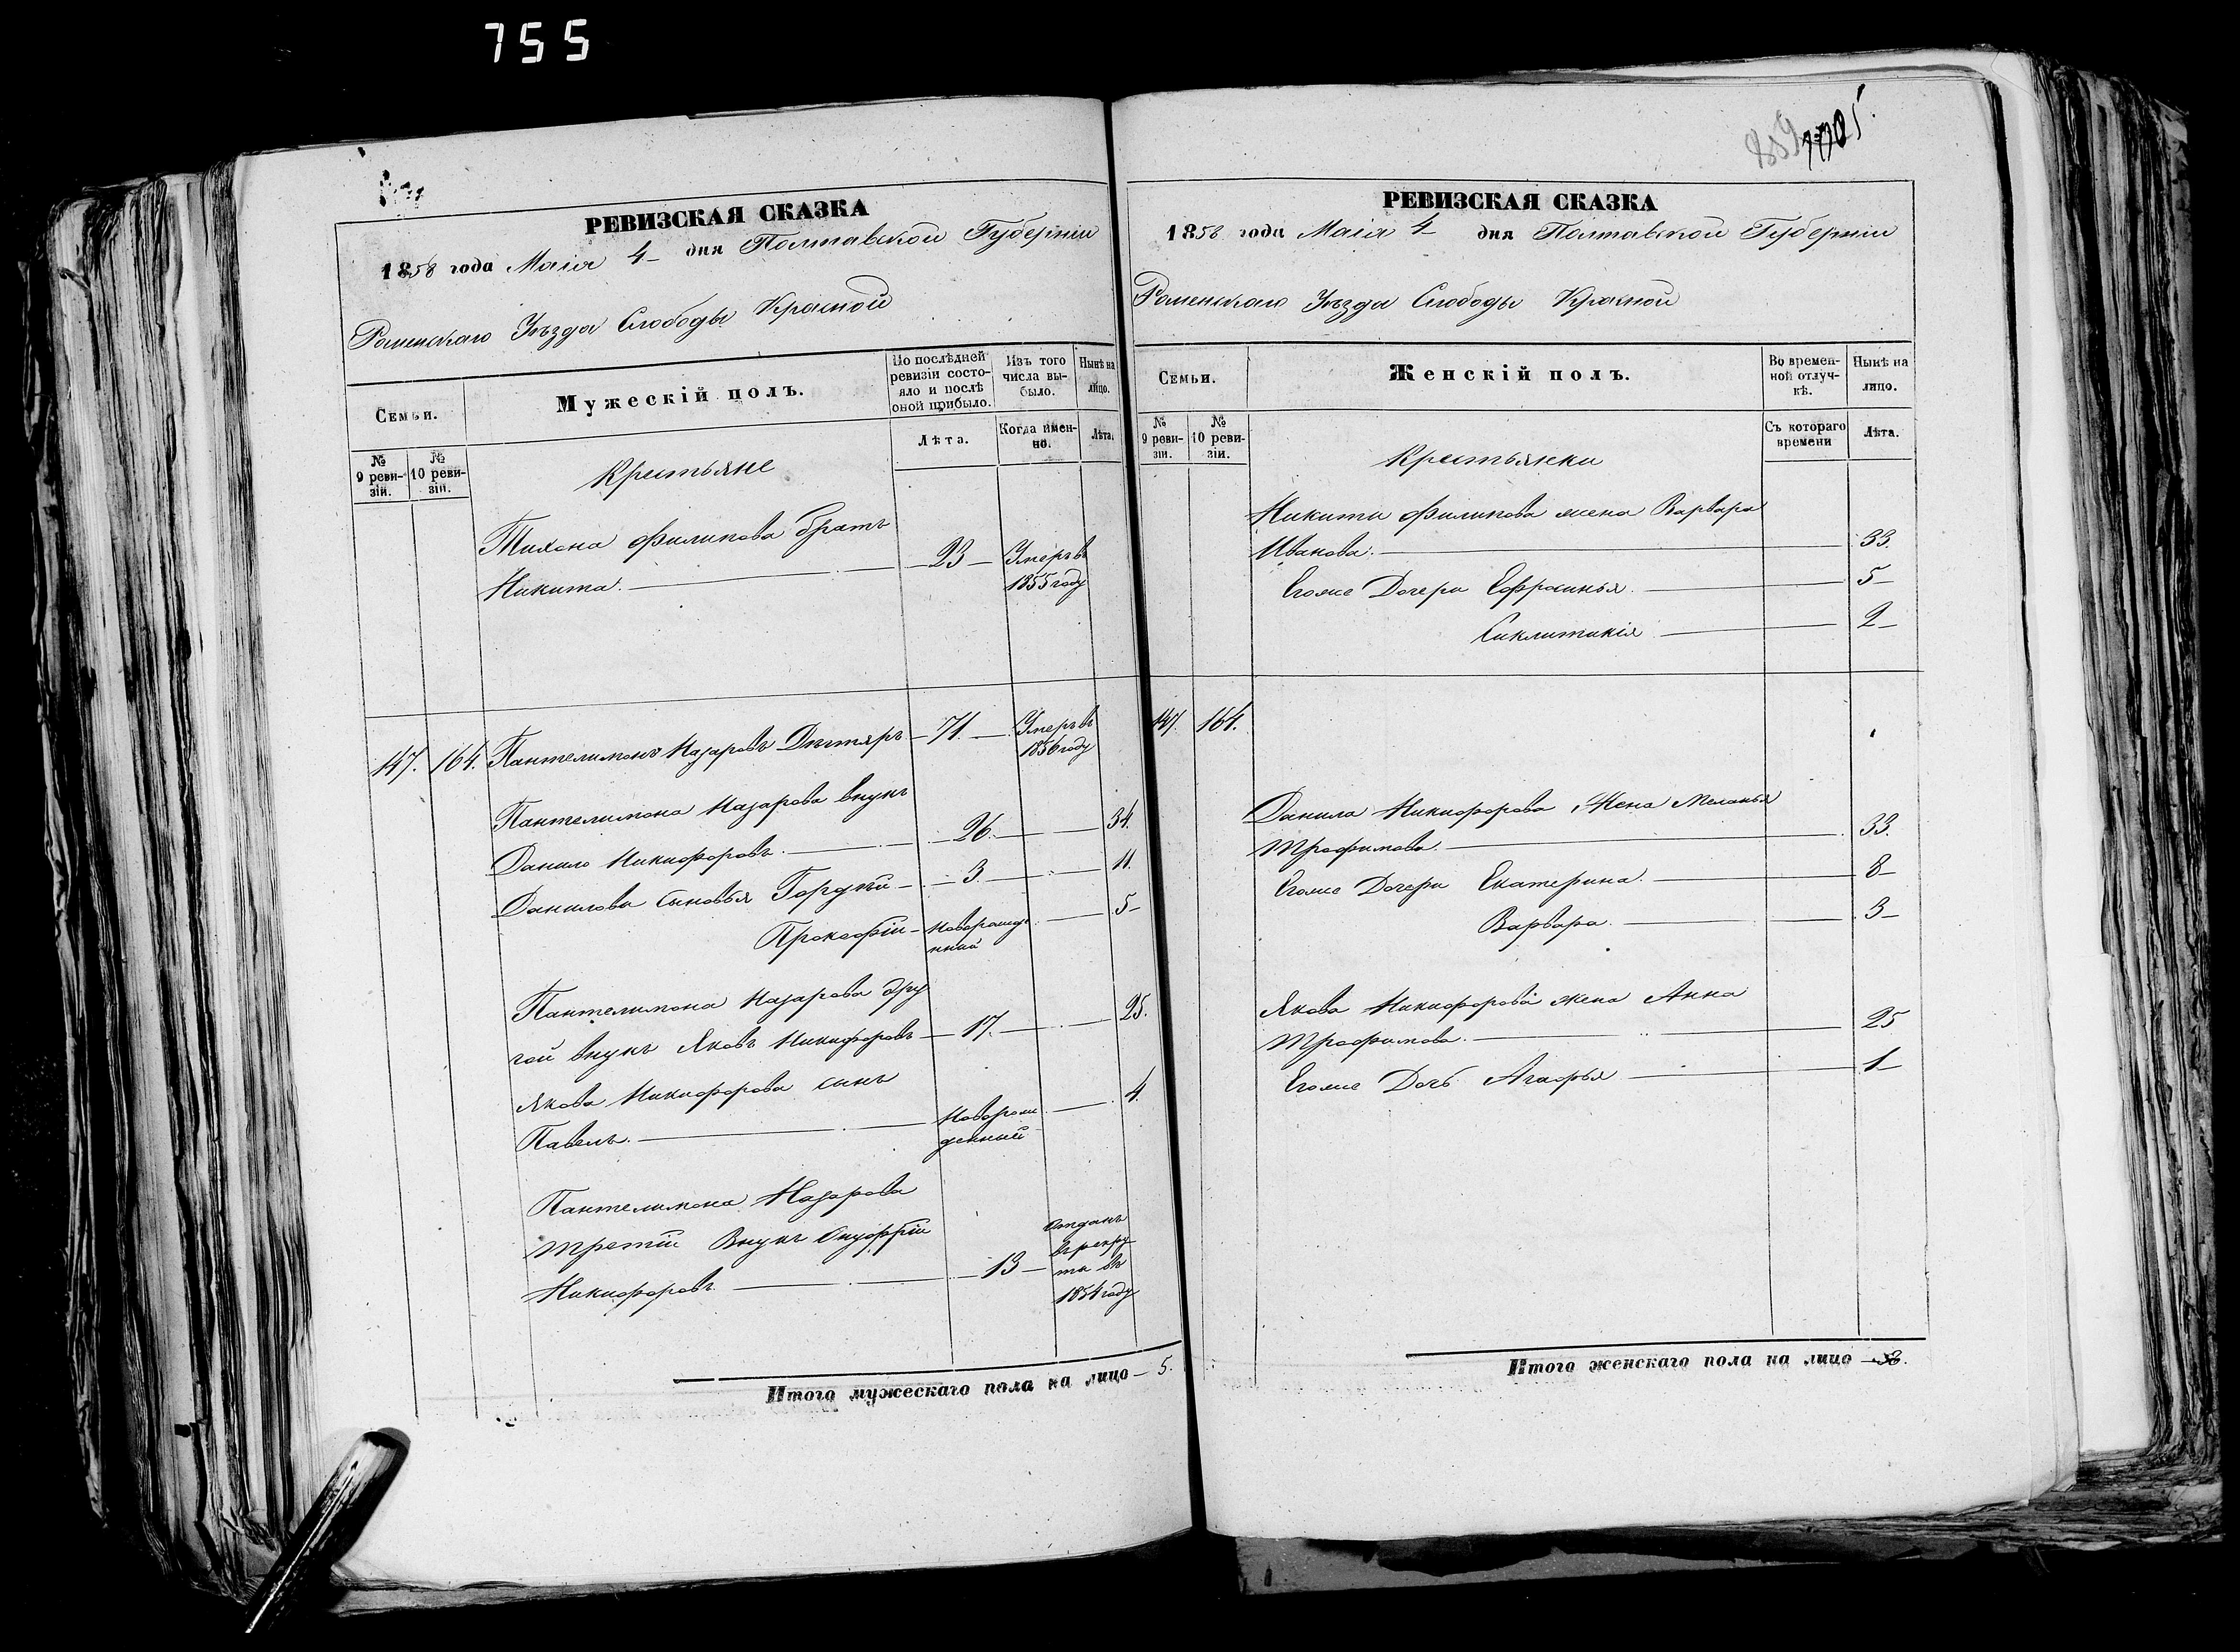 755
РЕВИЗСКАЯ СКАЗКА
1858 года Маія 4 дня Полтавской Губерніи
Роменскаго Уѣзда Слободы Красной
Семьи.
Мужескій полъ.
По послѣдней ревизіи состояло и послѣ оной прибыло.
Изъ того числа выбыло.
Нынѣ на лицо.
№ 9 ревизіи.
№ 10 ревизіи.
Лѣта.
Когда именно.
Лѣта.
Крестьяне
Тихона Филипова братъ
Никита. 23 Умеръ в 1855 году
147. 164. Пантелимонъ Назаровъ Дегтяръ 71. Умеръ в 1856 году
Пантелимона Назарова внукъ
Данило Никифоровъ. 26. 34.
Данилова сыновья Гордѣй 3. 11.
Прокофій новорожденный 5
Пантелимона Назарова дру
гой внукъ Яковъ Никифоровъ 17. 25.
Якова Никифорова сынъ
Павелъ. Новорожденный 4.
Пантелимона Назарова
третій Внукъ Онуфрій
Никифоровъ 13 отданъ в рекрута въ 1854 году
Итого мужескаго пола на лицо 5.
859
РЕВИЗСКАЯ СКАЗКА
1858 года Маія 4 дня Полтавской Губерніи
Роменскаго Уѣзда Слободы Красной
Семьи.
Женскій полъ.
Во временной отлучкѣ.
Нынѣ на лицо.
№ 9 ревизіи.
№ 10 ревизіи.
Съ котораго времени
Лѣта.
Крестьянки
Никиты Филипова жена Варвара
Иванова. 33.
Егоже Дочери Ефросинья. 5
Сиклитикія 2
147. 164.
Данила Никифорова Жена Меланья
Трофимова. 33.
Егоже Дочери Екатерина. 8
Варвара. 3
Якова Никифорова жена Анна
Трофимова. 25
Егоже Дочь Агафья 1
Итого женскаго пола на лицо